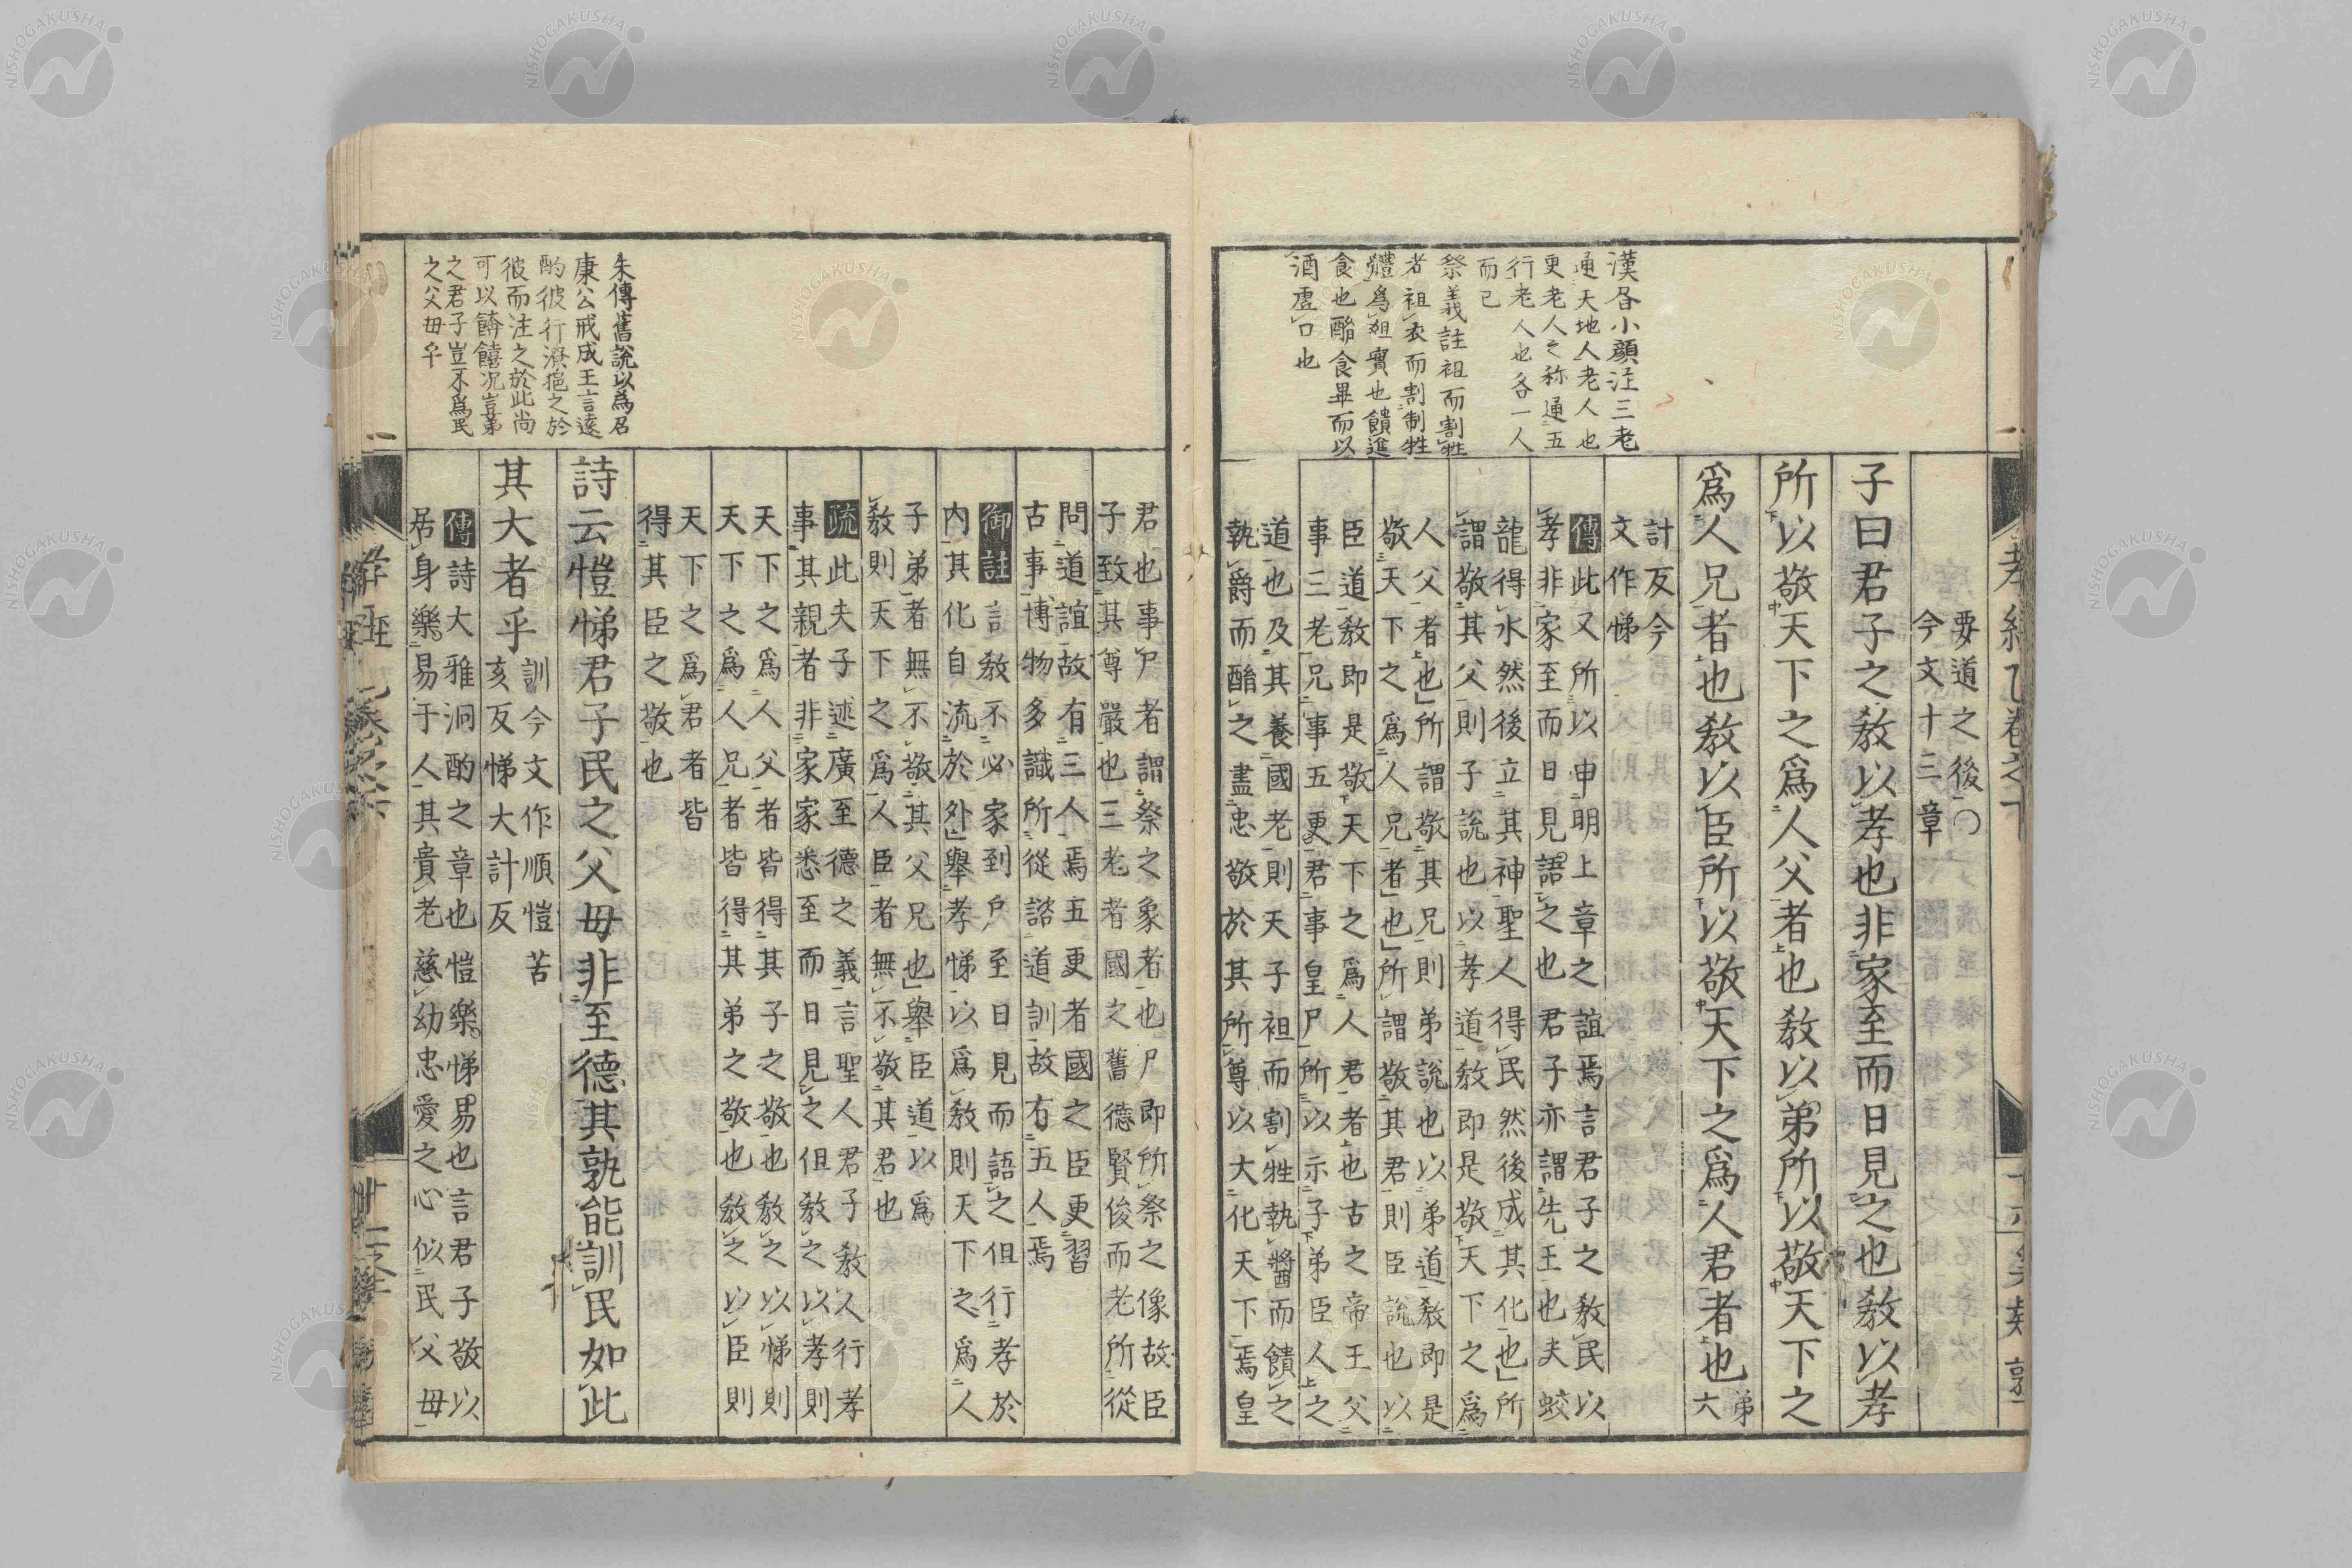 漢昏小顔注三老
通天地人老人也
更老人之称通五
行老人也各一人
而已
祭義註袒而割牲
者袒衣而割制牲
體爲俎實也饋進
食也酳食畢而以
酒虚口也
要道之後〇
今文十三章
子曰君子之教以孝也非家至而日見之也教以孝
所以敬天下之爲人父者也教以弟所以敬天下之
爲人兄者也教以臣所以敬天下之爲人君者也
弟
六
計反今
文作悌
傳此又所以申明上章之誼焉言君子之教民以
孝非家至而日見語之也君子亦謂先王也夫蛟
龍得水然後立其神聖人得民然後成其化也所
謂敬其父則子説也以孝道教即是敬天下之爲
人父者也所謂敬其兄則弟説也以弟道教即是
敬天下之爲人兄者也所謂敬其君則臣説也以
臣道教即是敬天下之爲人君者也古之帝王父
事三老兄事五更君事皇尸所以示子弟臣人之
道也及其養國老則天子袒而割牲執醬而饋之
執爵而酳之盡忠敬於其所尊以大化天下焉皇
朱傳舊説以爲召
康公戒成王言遠
酌彼行潦挹之於
彼而注之於此尚
可以餴饎况豈弟
之君子豈不爲民
之父母乎
君也事尸者謂祭之象者也尸即所祭之像故臣
子致其尊嚴也三老者國之舊德賢俊而老所從
問道誼故有三人焉五更者國之臣更習
古事博物多識所從諮道訓故有五人焉
御註言教不必家到戸至日見而語之但行孝於
内其化自流於外舉孝悌以爲教則天下之爲人
子弟者無不敬其父兄也舉臣道以爲
教則天下之爲人臣者無不敬其君也
疏此夫子述廣至德之義言聖人君子教人行孝
事其親者非家家悉至而日見之但教之以孝則
天下之爲人父者皆得其子之敬也教之以悌則
天下之爲人兄者皆得其弟之敬也教之以臣則
天下之爲君者皆
得其臣之敬也
詩云愷悌君子民之父母非至德其孰能訓民如此
其大者乎
訓今文作順愷苦
亥反悌大計反
傳詩大雅泂酌之章也愷樂悌易也言君子敬以
居身樂易于人其貴老慈幼忠愛之心似民父母